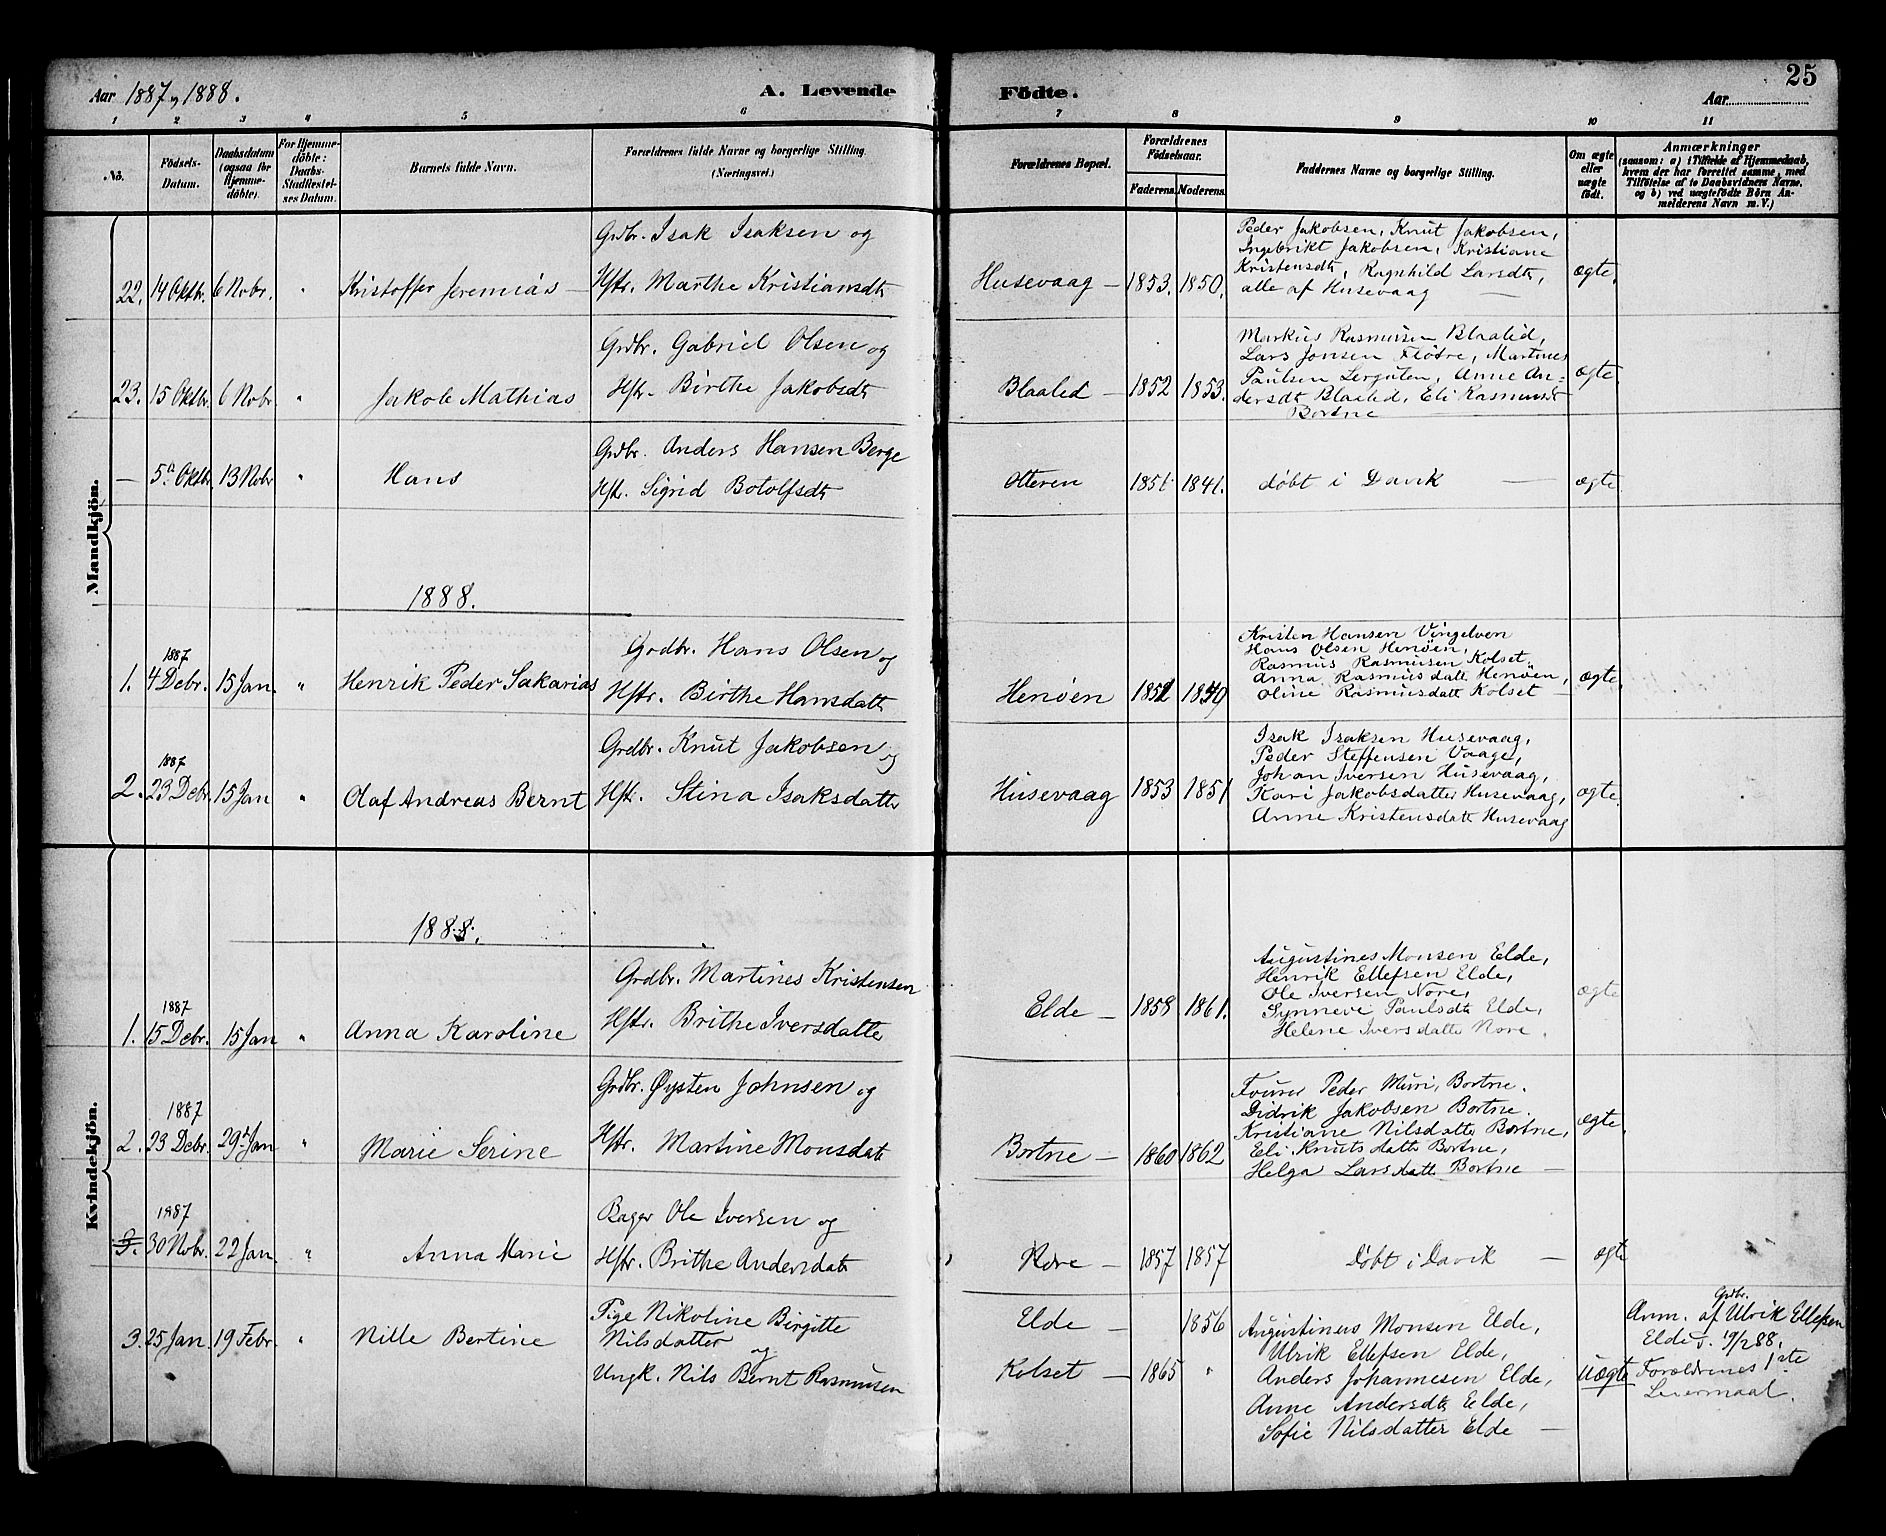 Aar 1887 og 1888.
A. Levende Födte.
25
Aar
1 2 3 4 5 6 7 8 9 10 11
No.
Födsels-Datum.
Daabsdatum (ogsaa for Hjemmedöbte).
For Hjemmedöbte: Daabs-Stadfæstelses Datum.
Barnets fulde Navn.
Forældrenes fulde Navne og borgerlige Stilling. (Næringsvei.)
Forældrenes Bopæl.
Forældrenes Födselsaar.
Faderens. Moderens.
Faddernes Navne og borgerlige Stilling.
Om ægte eller uægte födt.
Anmærkninger
(saasom: a) i Tilfælde af Hjemmedaab,
hvem der har forrettet samme, med
Tilföielse af to Daabsvidners Navne,
og b) ved uægtefödte Börn An-
melderens Navn m. V.)
Mandkjön.
22. 14 Oktbr. 6 Nobr. " Kristoffer Jeremias
Grdbr. Isak Isaksen og
Hstr. Marthe Kristiansdtr
Husevaag — 1853. 1850.
Peder Jakobsen, Knut Jakobsen,
Ingebrikt Jakobsen, Kristiane
Kristensdtr, Ragnhild Larsdtr,
alle af Husevaag —
ægte.
23. 15 Oktbr. 6 Nobr. " Jakob Mathias
Grdbr. Gabriel Olsen og
Hstr. Birthe Jakobsdtr
Blaalid — 1852 1853.
Markus Rasmusen Blaalid,
Lars Jonsen Flötre, Martines
Paulsen Lerguten, Anne An-
dersdtr Blaalid, Eli Rasmusdtr
Bortne
ægte.
— 5te Oktbr. 13 Nobr " Hans
Grdbr. Anders Hansen Berge
Hstr. Sigrid Botolfsdtr
Otteren 1851 1841. döbt i Davik — ægte
1888.
1887
1. 4 Debr. 15 Jan. " Henrik Peder Sakarias
Grdbr. Hans Olsen og
Hstr. Birthe Hansdattr
Henöen 1852 1849
Kristen Hansen Vingelven
Hans Olsen Henöen,
Rasmus Rasmusen Kolset
Anna Rasmusdattr Henöen,
Oline Rasmusdattr Kolset —
ægte.
1887
2. 23 Debr. 15 Jan " Olaf Andreas Bernt
Grdbr. Knut Jakobsen og
Hstr. Stina Isaksdatter
Husevaag 1853 1851
Isak Isaksen Husevaag,
Peder Steffensen Vaage,
Johan Iversen Husevaag,
Kari Jakobsdatter Husevaag,
Anne Kristensdattr Husevaag
ægte.
Kvindekjön.
1888.
1887
1. 15 Debr. 15 Jan " Anna Karoline
Grdbr. Martines Kristensen
Hstr. Brithe Iversdatter
Elde — 1858 1861.
Augustines Monsen Elde,
Henrik Ellefsen Elde,
Ole Iversen Nore,
Synneve Paulsdtr Elde,
Helene Iversdattr Nore.
ægte
1887
2. 23 Debr. 29de Jan " Marie Serine
Grdbr. Øysten Johnsen og
Hstr. Martine Monsdatr
Bortne — 1860 1862
Fourer Peder Muri, Bortne.
Didrik Jakobsen Bortne.
Kristiane Nilsdattr Bortne,
Eli Knutsdattr Bortne,
Helga Larsdattr Bortne —
ægte.
1887
3. 30 Nobr. 22 Jan. " Anna Marie
Bager Ole Iversen og
Hstr. Brithe Andersdatr
Nore — 1857 1857 Döbt i Davik — ægte
3. 25 Jan. 19 Febr. " Nille Bertine
Pige Nikoline Birgitte
Nilsdatter
og
Ungk. Nils Bernt Rasmusen
Elde — 1856
Kolset — 1865 "
Augustines Monsen Elde,
Ulrik Ellefsen Elde,
Anders Johannesen Elde,
Anne Andersdtr Elde,
Sofie Nilsdatter Elde —
uægte
Grdbr.
Anm. af Ulrik Ellefsen
Elde d. 19/2 88.
Forældrenes 1ste
Leiermaal.